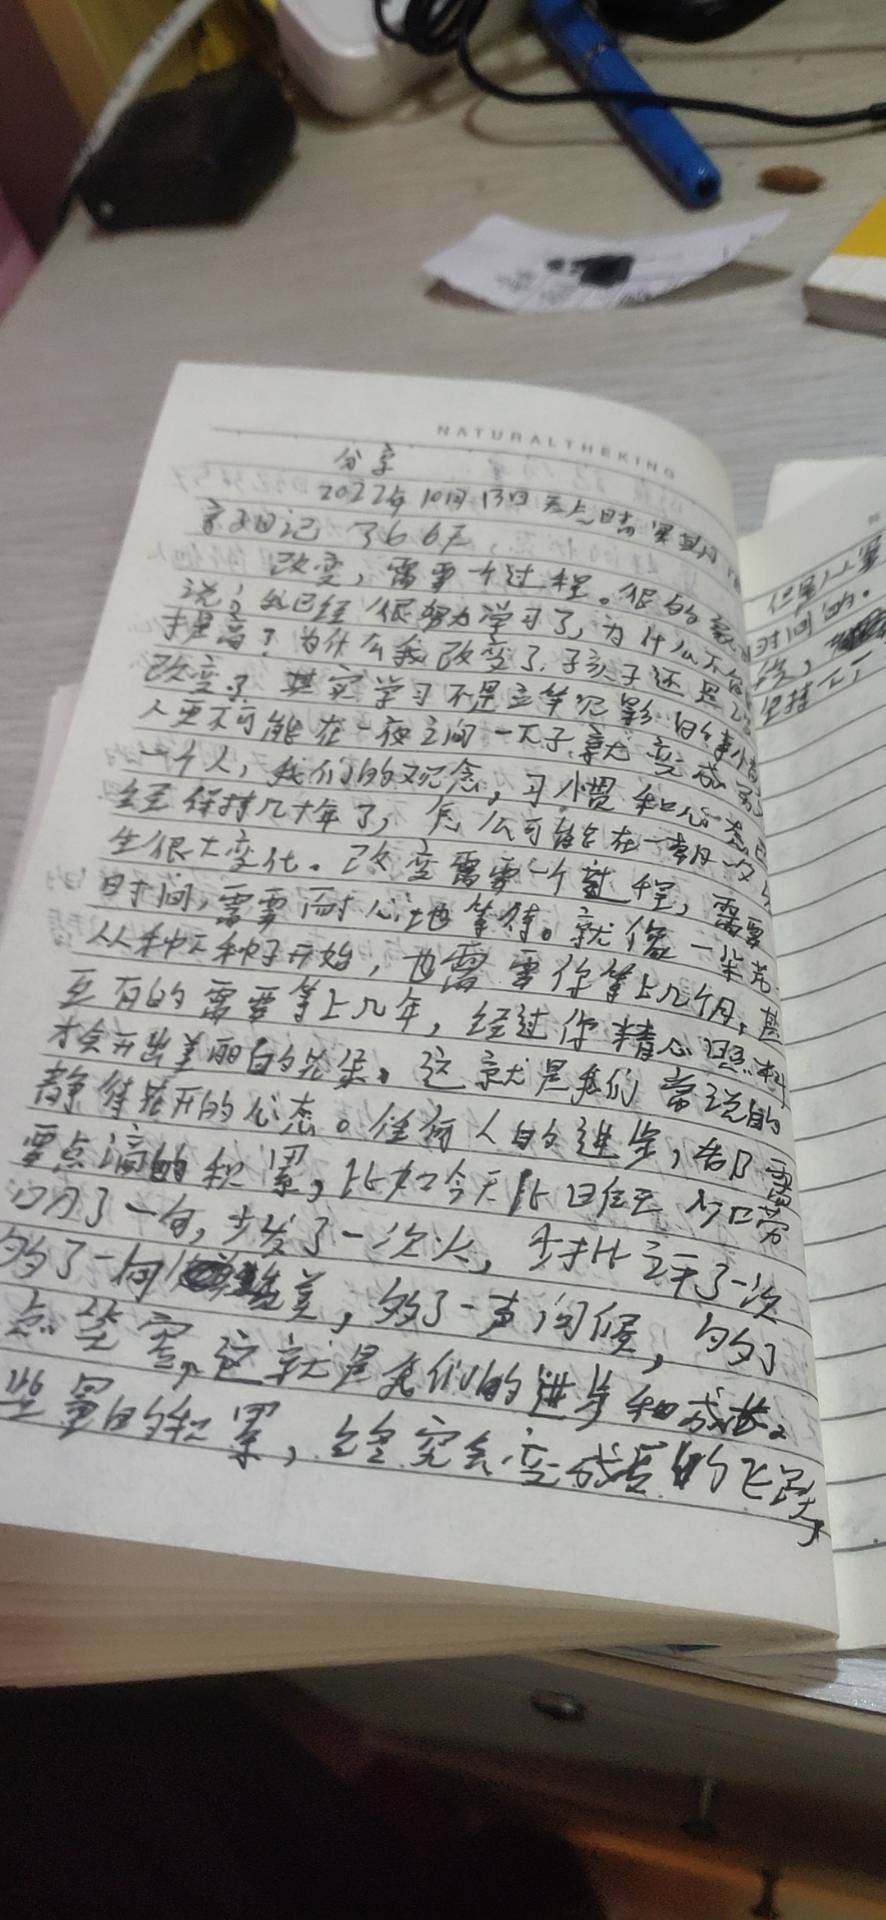 NATURALTHEKING
分享
2022年10月13日 天气晴
亲子日记 766天
改变，需要一个过程。很多家
说：我已经很努力学习了，为什么不
提高？为什么我改变了，孩子还是
改变？其实学习不是立竿见影的事情
人更不可能在一夜之间一下子就变成另
一个人，我们的观念，习惯和心态已
经保持几十年了，怎么可能在一朝一夕
生很大变化。改变需要一个过程，需要
时间，需要耐心地等待。就像一朵花
从种下种子开始，也需要你等上几个月，甚
至有的需要等上几年，经过你精心照料
才会开出美丽的花朵。这就是我们常说的
静待花开的心态。任何人的进步，都需
要点滴的积累，比如今天比昨天少唠
叨了一句，少发了一次火，少对比了一次
多了一句赞美，多了一声问候，多了
点笑容，这就是我们的进步和成长。
些量的积累，终究会变成质的飞跃，
但是
时间的。
坚持